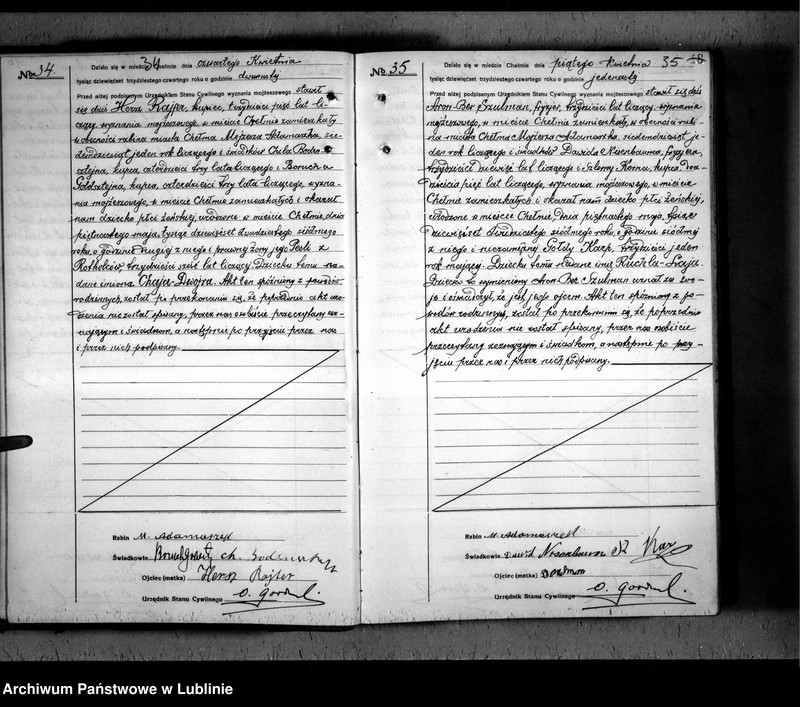 № 34.
34
Działo się w mieście Chełmie dnia czwartego Kwietnia
tysiąc dziewięćset trzydziestego czwartego roku o godzinie dwunastej
Przed niżej podpisanym Urzędnikiem Stanu Cywilnego wyznania mojżeszowego stawił
się dziś kupiec, trzydzieści pięć lat li-
czący, wyznania mojżeszowego, w mieście Chełmie zamieszkały
w obecności rabina miasta Chełma Mejera Adamaszka, sie-
demdziesiąt jeden rok liczącego i świadków
kupca, lat liczącego i Borucha
kupca, trzy lata liczącego, wyzna-
nia mojżeszowego, w mieście Chełmie zamieszkałych i okazał
nam dziecko płci żeńskiej, urodzone w mieście Chełmie dnia
piętnastego maja, tysiąc dziewięćset dwudziestego siódmego
roku, o godzinie drugiej z niego i prawnej żony jego Pesli z
trzydzieści sześć lat liczącej. Dziecku temu na-
dano imiona Chaja-Dwojra. Akt ten spóźniony z powodów
rodzinnych, został po przekonaniu się, że poprzednio akt uro-
dzenia nie został spisany, przez nas osobiście przeczytany ze-
znającym i świadkom, a następnie po przyjęciu przez nas
i przez nich podpisany.
Rabin M. Adamaszek
Świadkowie
Ojciec (matka) Hersz Rajter
Urzędnik Stanu Cywilnego
№ 35
35
Działo się w mieście Chełmie dnia piątego Kwietnia
tysiąc dziewięćset trzydziestego czwartego roku o godzinie jedenastej
Przed niżej podpisanym Urzędnikiem Stanu Cywilnego wyznania mojżeszowego stawił się dziś
Aron-Ber Szulman, fryzjer, trzydzieści lat liczący, wyznania
mojżeszowego, w mieście Chełmie zamieszkały, w obecności rabi-
na miasta Chełma Mejera Adamaszka, siedemdziesiąt je-
den rok liczącego i świadków Dawida Nisenbauma, fryzjera,
trzydzieści dziewięć lat liczącego i kupca, dwa-
dzieścia pięć lat liczącego, wyznania mojżeszowego, w mieście
Chełmie zamieszkałych i okazał nam dziecko płci żeńskiej,
urodzone w mieście Chełmie dnia piętnastego maja, tysiąc
dziewięćset dwudziestego siódmego roku, o godzinie siódmej
z niego i niezamężnej Gołdy Karp, trzydzieści jeden
rok mającej. Dziecku temu nadano imię Ruchla-Fraja.
Dziecko to wymieniony Aron-Ber Szulman uznał za swo-
je i oświadczył, że jest jego ojcem. Akt ten spóźniony z po-
wodów rodzinnych, został po przekonaniu się, że poprzednio
akt urodzenia nie został spisany, przez nas osobiście
przeczytany zeznającym i świadkom, a następnie po przy-
jęciu przez nas i przez nich podpisany.
Rabin M. Adamaszek
Świadkowie Dawid Nisenbaum
Ojciec (matka)
Urzędnik Stanu Cywilnego
Archiwum Państwowe w Lublinie